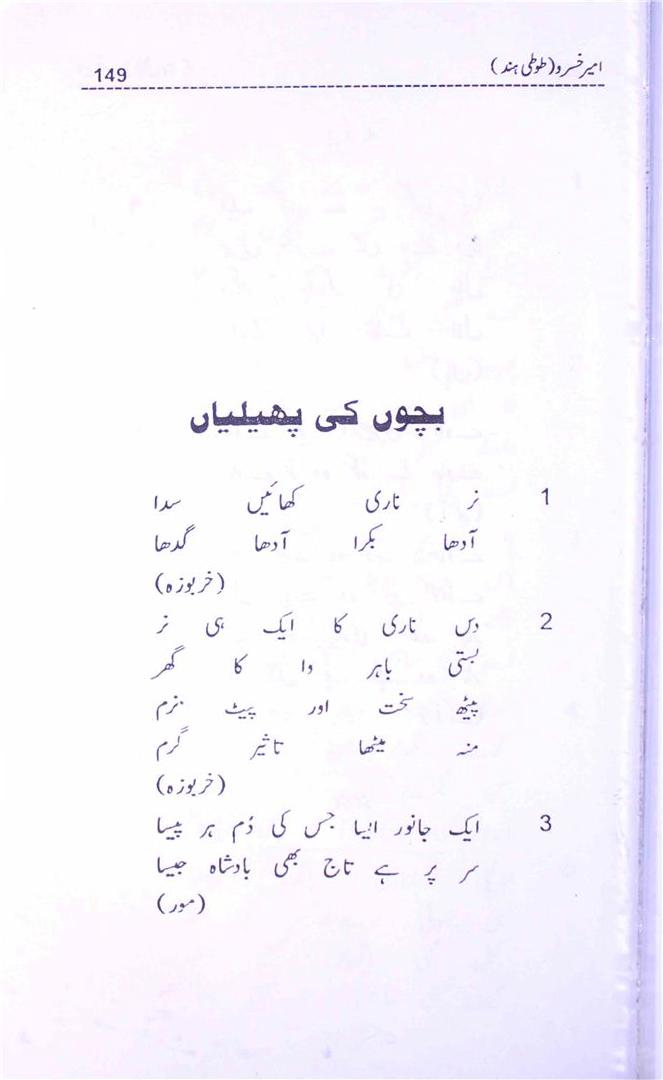 امیر خسرو (طوطی ہند)
149
بچوں کی پھیلیاں
1 نر ناری کھائیں سدا
آدھا بکرا آدھا گدھا
(خربوزہ)
2 دس ناری کا ایک ہی نر
بستی باہر وا کا گھر
پیٹھ سخت اور پیٹ نرم
منہ میٹھا تاثیر گرم
(خربوزہ)
3 ایک جانور ایسا جس کی دُم پر پیسا
سر پر ہے تاج بھی بادشاہ جیسا
(مور)